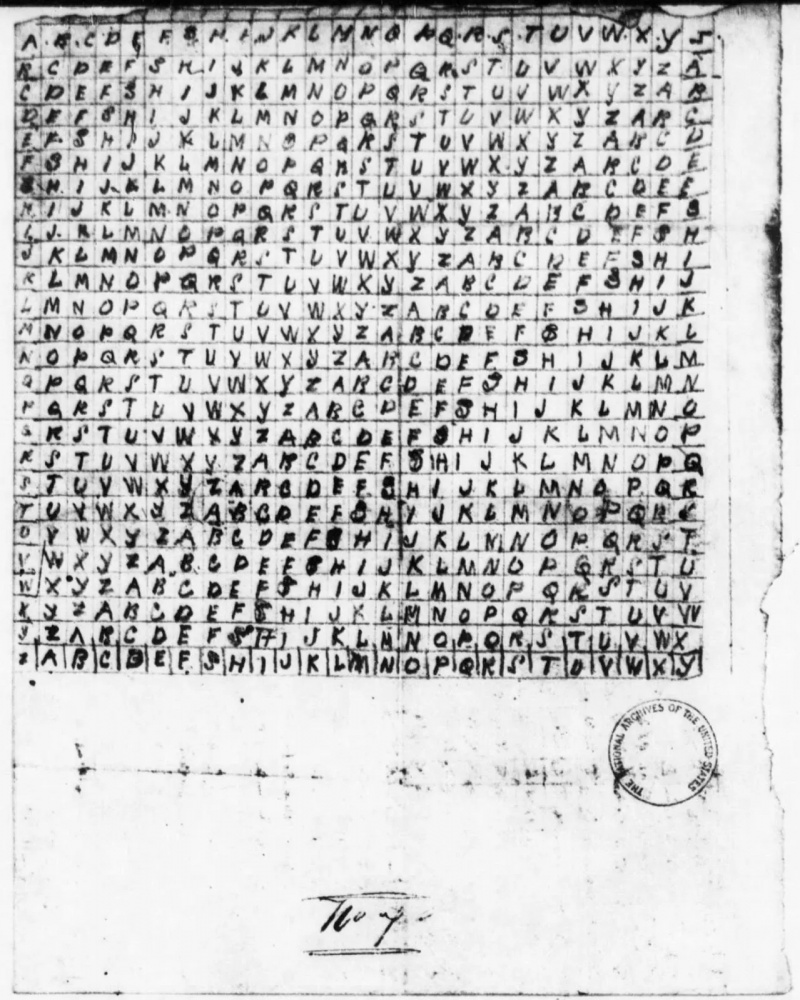 A B C D E F G H I J K L M N O P Q R S T U V W X Y Z
B C D E F G H I J K L M N O P Q R S T U V W X Y Z A
C D E F G H I J K L M N O P Q R S T U V W X Y Z A B
D E F G H I J K L M N O P Q R S T U V W X Y Z A B C
E F G H I J K L M N O P Q R S T U V W X Y Z A B C D
F G H I J K L M N O P Q R S T U V W X Y Z A B C D E
G H I J K L M N O P Q R S T U V W X Y Z A B C D E F
H I J K L M N O P Q R S T U V W X Y Z A B C D E F G
I J K L M N O P Q R S T U V W X Y Z A B C D E F G H
J K L M N O P Q R S T U V W X Y Z A B C D E F G H I
K L M N O P Q R S T U V W X Y Z A B C D E F G H I J
L M N O P Q R S T U V W X Y Z A B C D E F G H I J K
M N O P Q R S T U V W X Y Z A B C D E F G H I J K L
N O P Q R S T U V W X Y Z A B C D E F G H I J K L M
O P Q R S T U V W X Y Z A B C D E F G H I J K L M N
P Q R S T U V W X Y Z A B C D E F G H I J K L M N O
Q R S T U V W X Y Z A B C D E F G H I J K L M N O P
R S T U V W X Y Z A B C D E F G H I J K L M N O P Q
S T U V W X Y Z A B C D E F G H I J K L M N O P Q R
T U V W X Y Z A B C D E F G H I J K L M N O P Q R S
U V W X Y Z A B C D E F G H I J K L M N O P Q R S T
V W X Y Z A B C D E F G H I J K L M N O P Q R S T U
W X Y Z A B C D E F G H I J K L M N O P Q R S T U V
X Y Z A B C D E F G H I J K L M N O P Q R S T U V W
Y Z A B C D E F G H I J K L M N O P Q R S T U V W X
Z A B C D E F G H I J K L M N O P Q R S T U V W X Y
THE NATIONAL ARCHIVES OF THE UNITED STATES